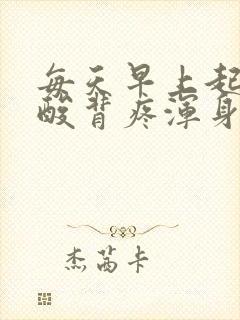 每天早上起
酸背疼浑身
杰茜卡